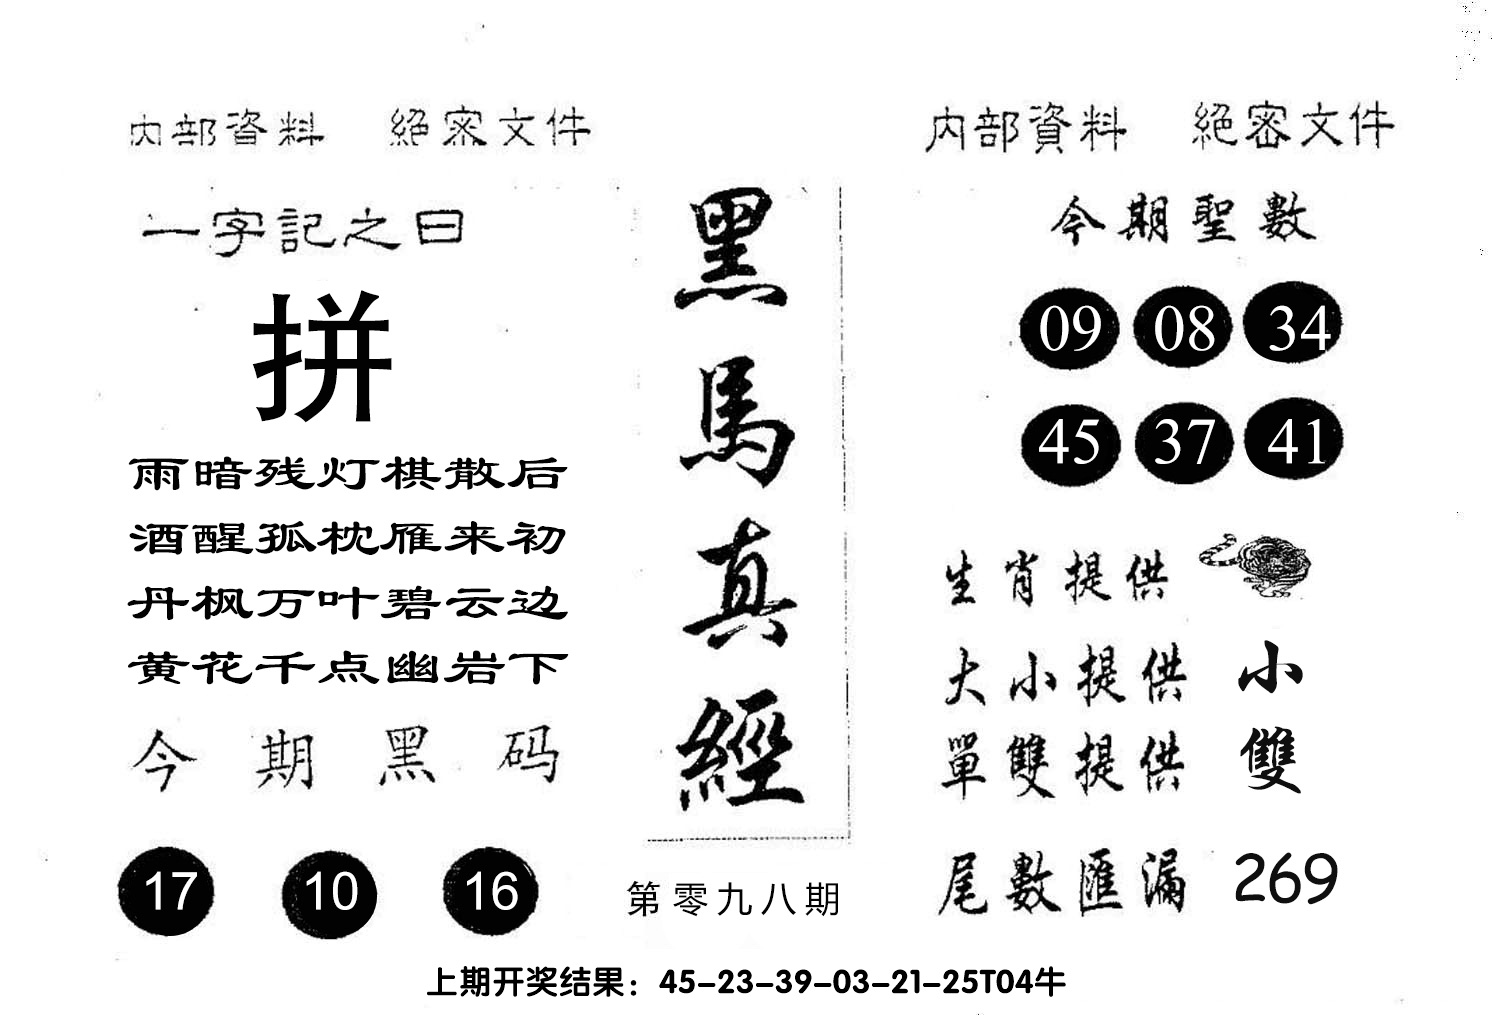 内部資料 絕密文件
一字記之曰
拼
雨暗残灯棋散后
酒醒孤枕雁来初
丹枫万叶碧云边
黄花千点幽岩下
今期黑码
17 10 16
黑馬真經
第零九八期
内部資料 絕密文件
今期聖數
09 08 34
45 37 41
生肖提供
大小提供 小
單雙提供 雙
尾數匯漏 269
上期开奖结果：45-23-39-03-21-25T04牛